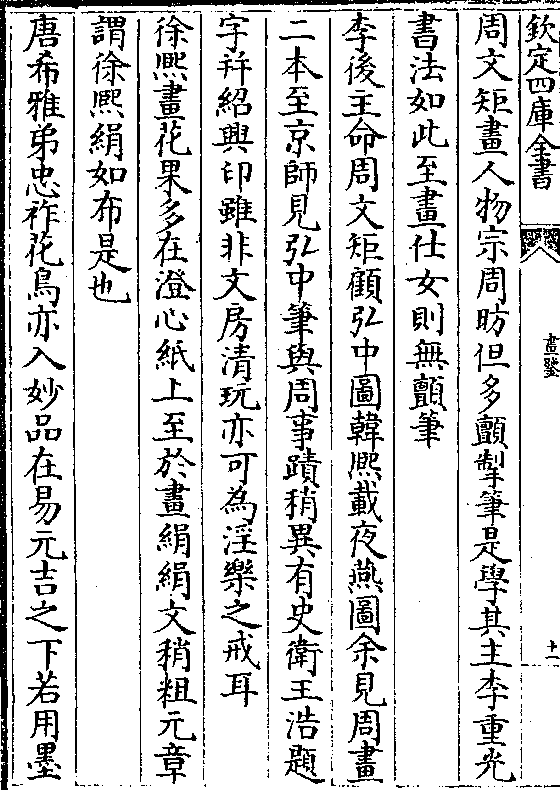 欽定四庫全書
畫鑒
十一
周文矩畫人物宗周昉但多顫掣筆是學其主李重光
書法如此至畫仕女則無顫筆
李後主命周文矩顧弘中圖韓熙載夜燕圖余見周畫
二本至京師見弘中筆與周事蹟稍異有史衛王浩題
字并紹興印雖非文房清玩亦可為淫樂之戒耳
徐熙畫花果多在澄心紙上至於畫絹絹文稍粗元章
謂徐熙絹如布是也
唐希雅弟忠祚花鳥亦入妙品在易元吉之下若用墨